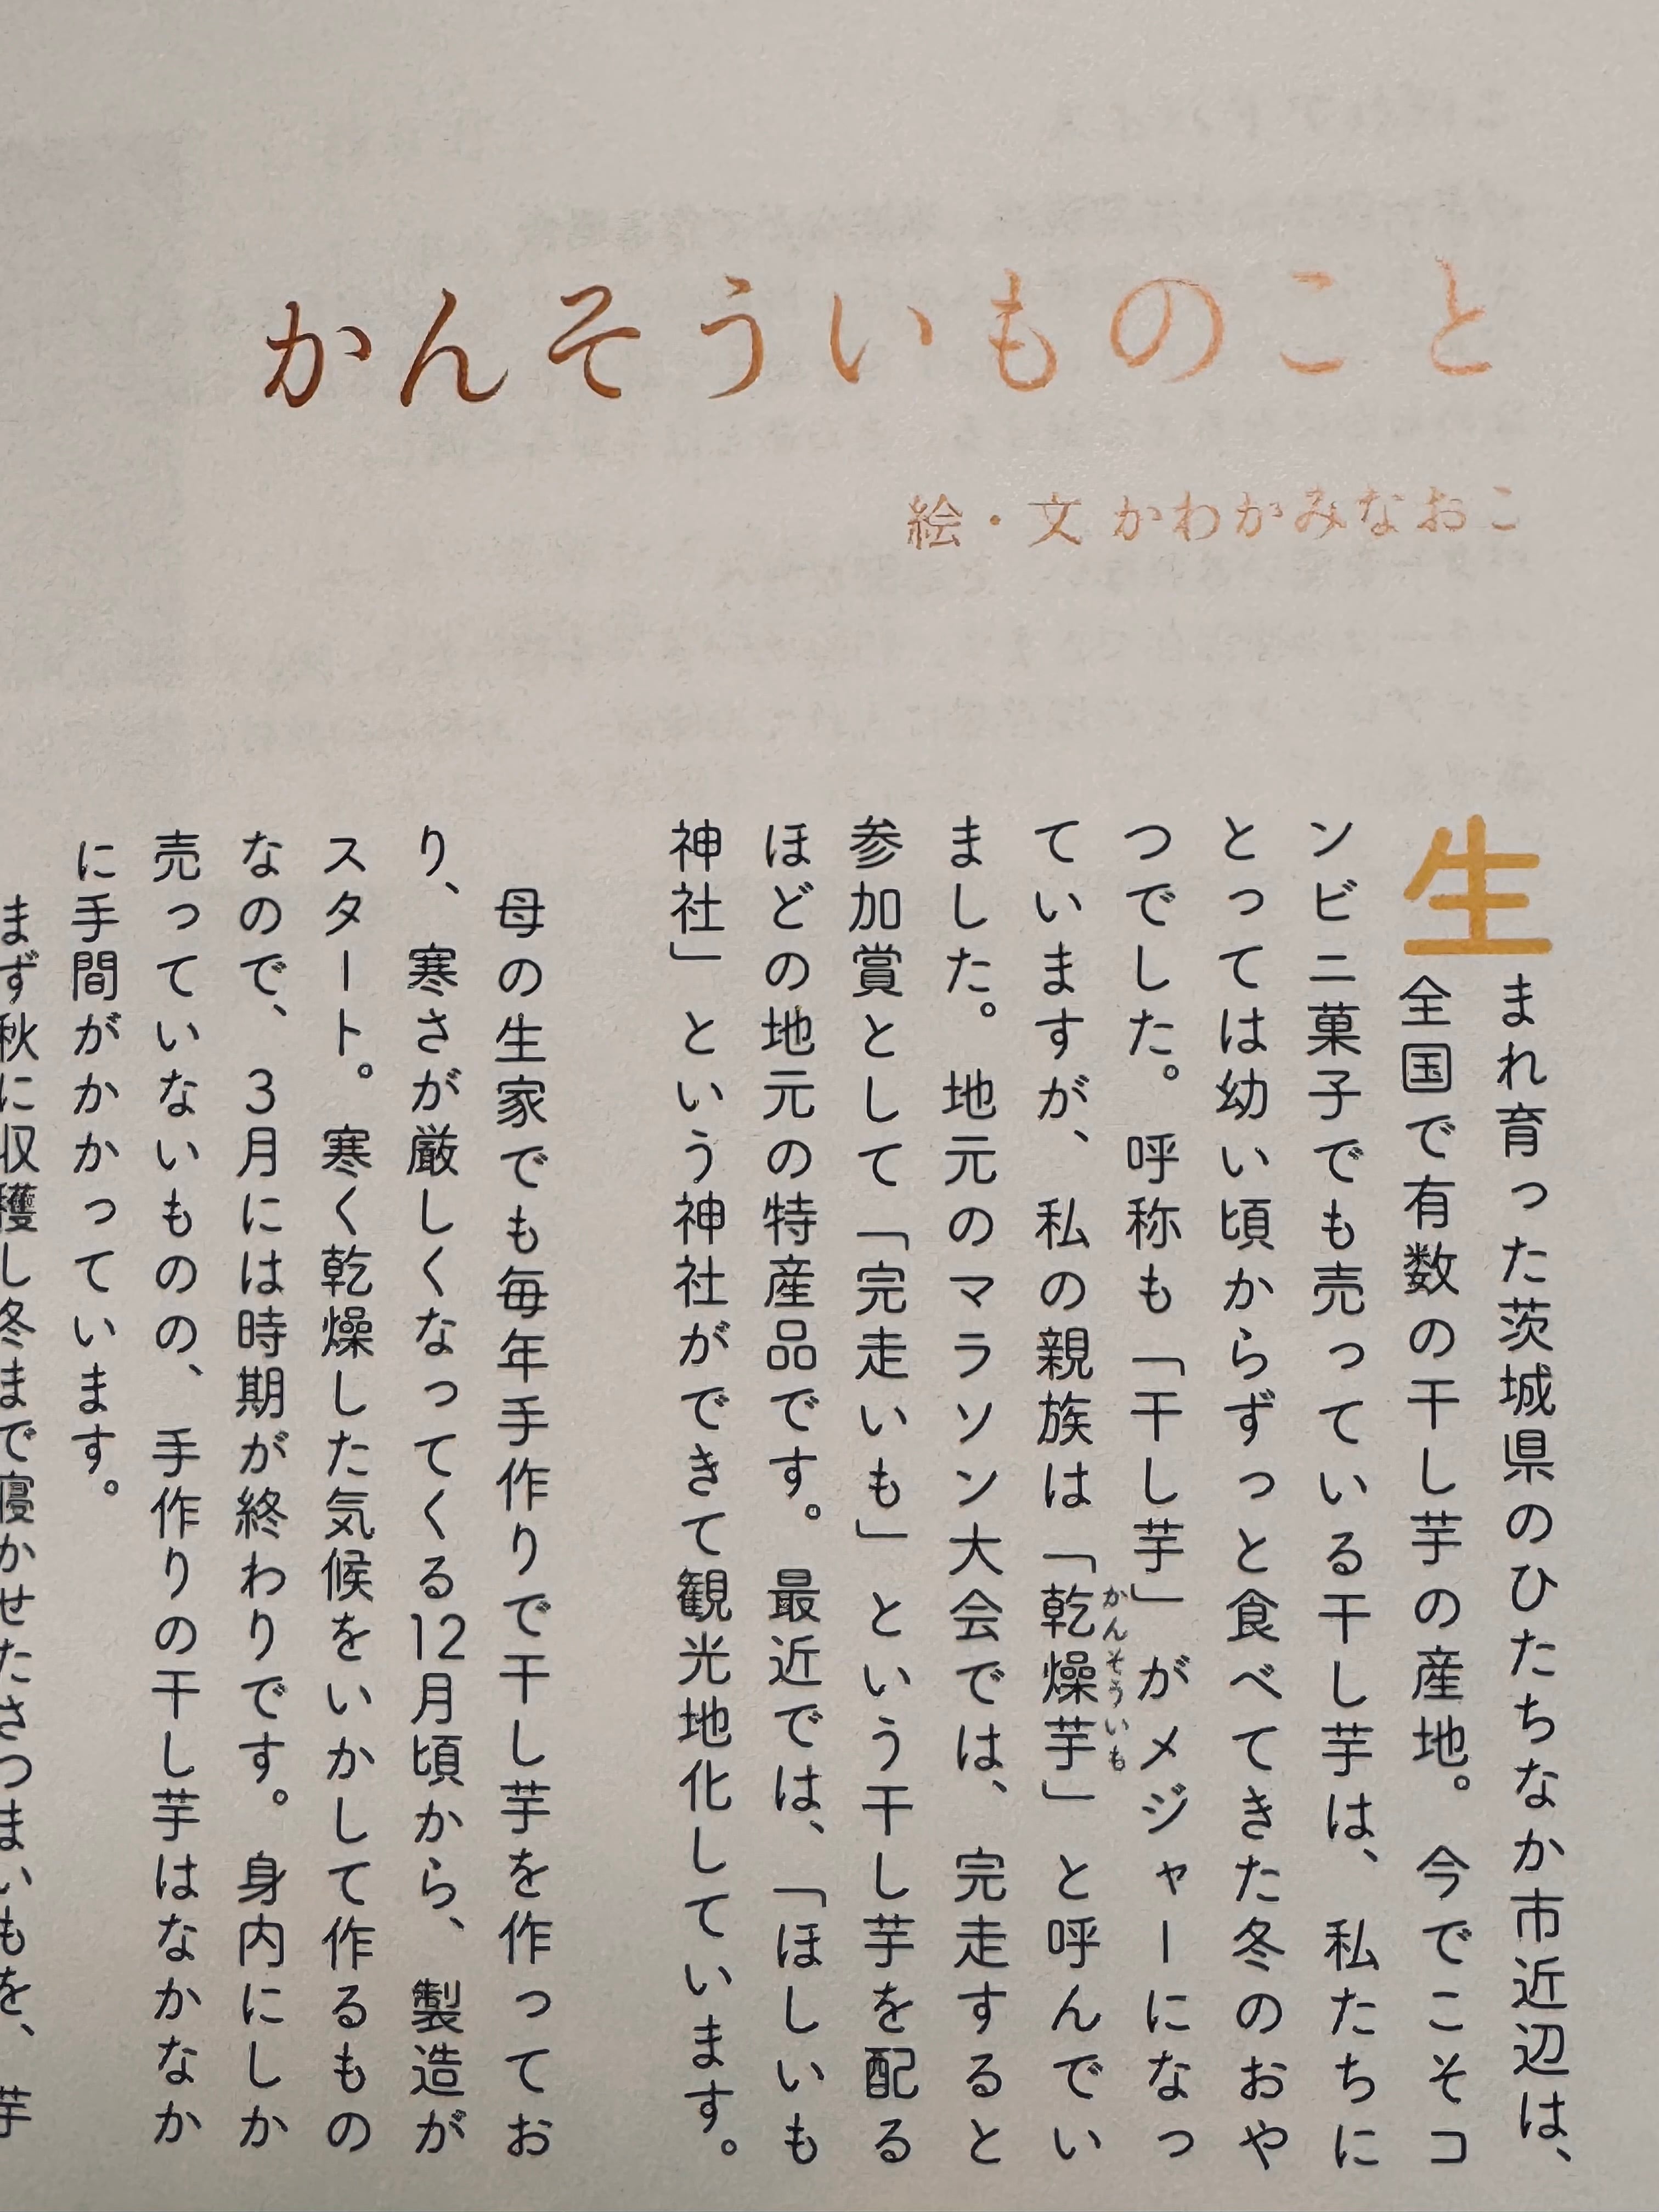 かんそういものこと
絵・文 かわかみなおこ
生まれ育った茨城県のひたちなか市近辺は、
全国で有数の干し芋の産地。今でこそコ
ンビニ菓子でも売っている干し芋は、私たちに
とっては幼い頃からずっと食べてきた冬のおや
つでした。呼称も「干し芋」がメジャーになっ
ていますが、私の親族は「乾燥芋」と呼んでい
かんそういも
ました。地元のマラソン大会では、完走すると
参加賞として「完走いも」という干し芋を配る
ほどの地元の特産品です。最近では、「ほしいも
神社」という神社ができて観光地化しています。
母の生家でも毎年手作りで干し芋を作ってお
り、寒さが厳しくなってくる12月頃から、製造が
スタート。寒く乾燥した気候をいかして作るもの
なので、3月には時期が終わりです。身内にしか
売っていないものの、手作りの干し芋はなかなか
に手間がかかっています。
まず秋に収穫し冬まで寝かせたさつまいもを、芋